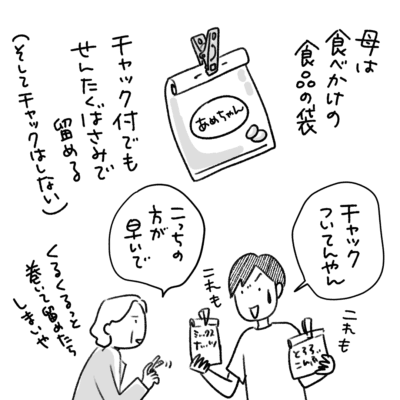 母は
食べかけの
食品の袋
チャック付でも
せんたくばさみで
留める
(そしてチャックはしない)
あめちゃん
チャック
ついてんやん
これも
これも
ミックス
ナッツ
とろろ
こんぶ
こっちの
方が
早いで
くるくるっと
巻いて留めたら
しまいや